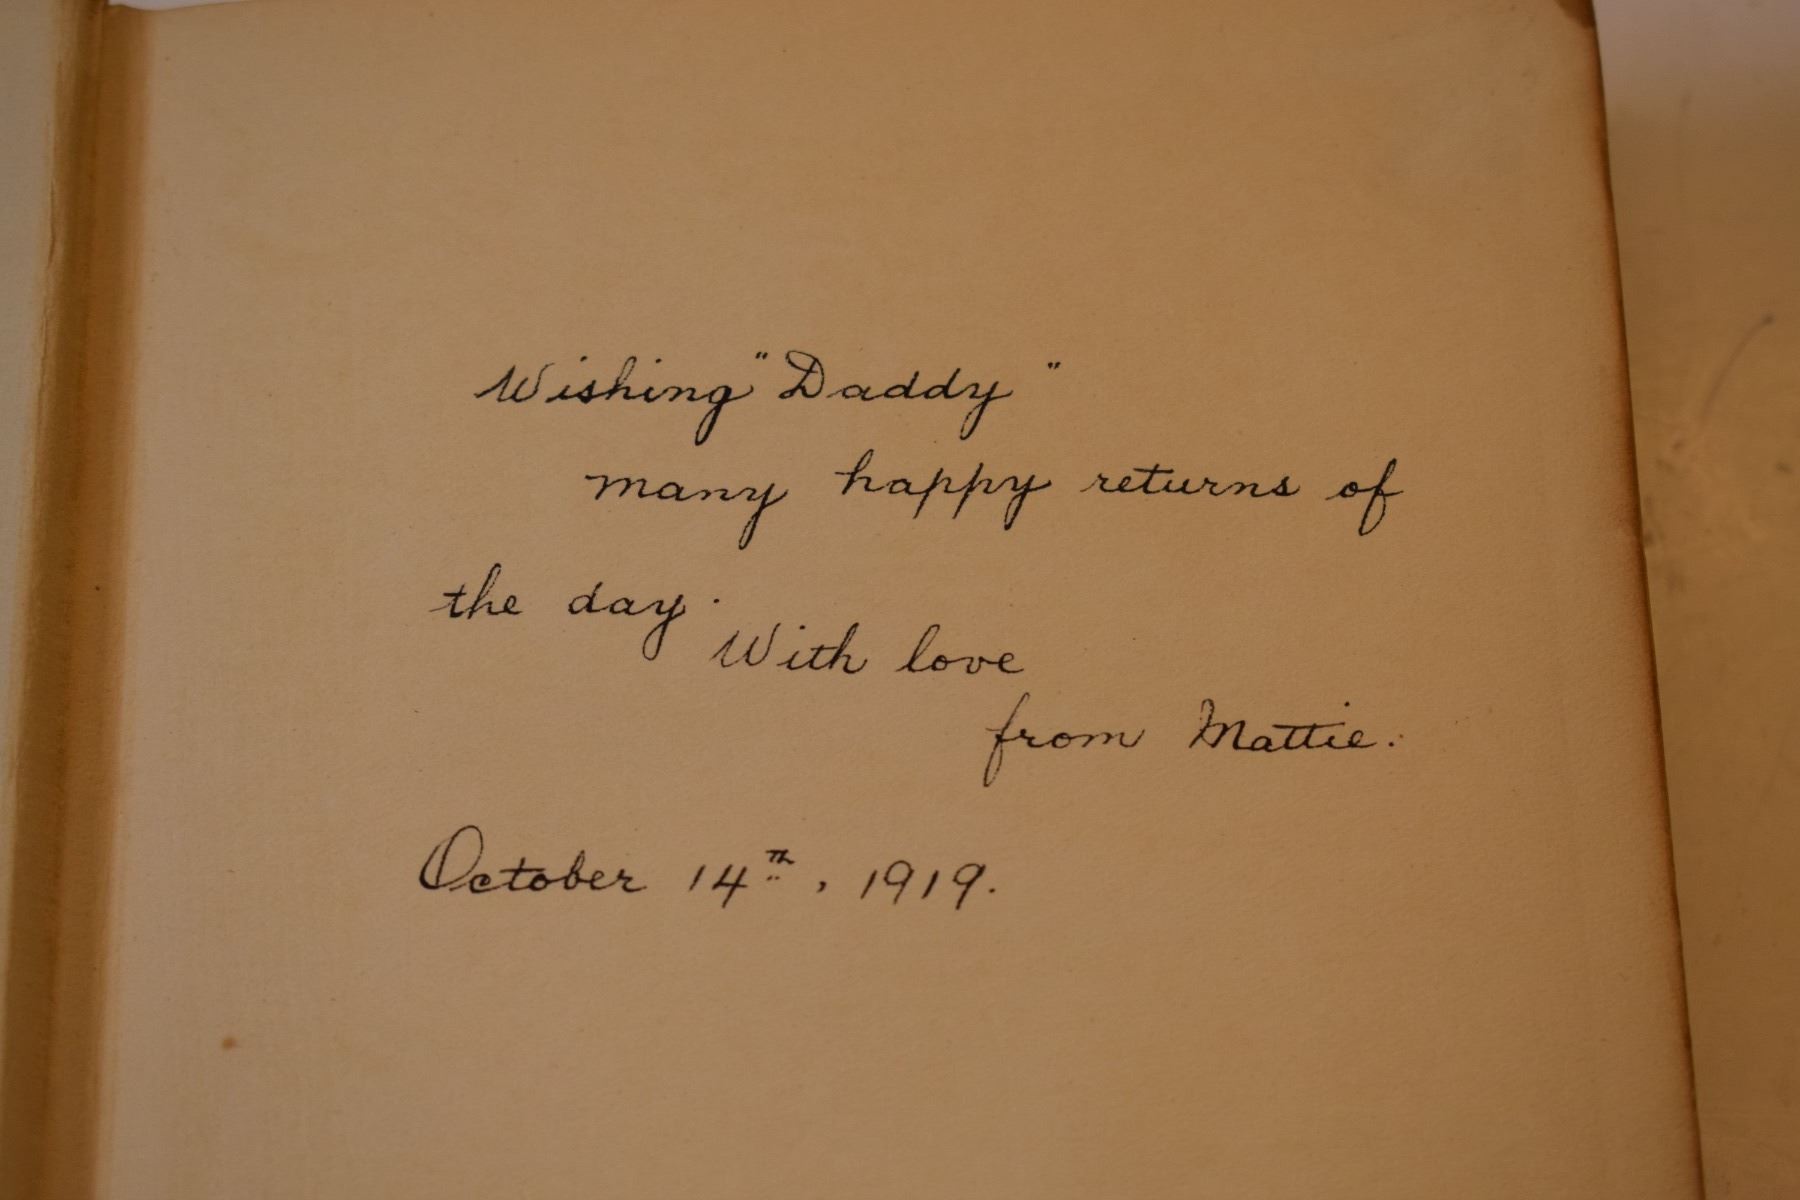 Wishing "Daddy"
many happy returns of
the day.
With love
from Mattie.
October 14th, 1919.